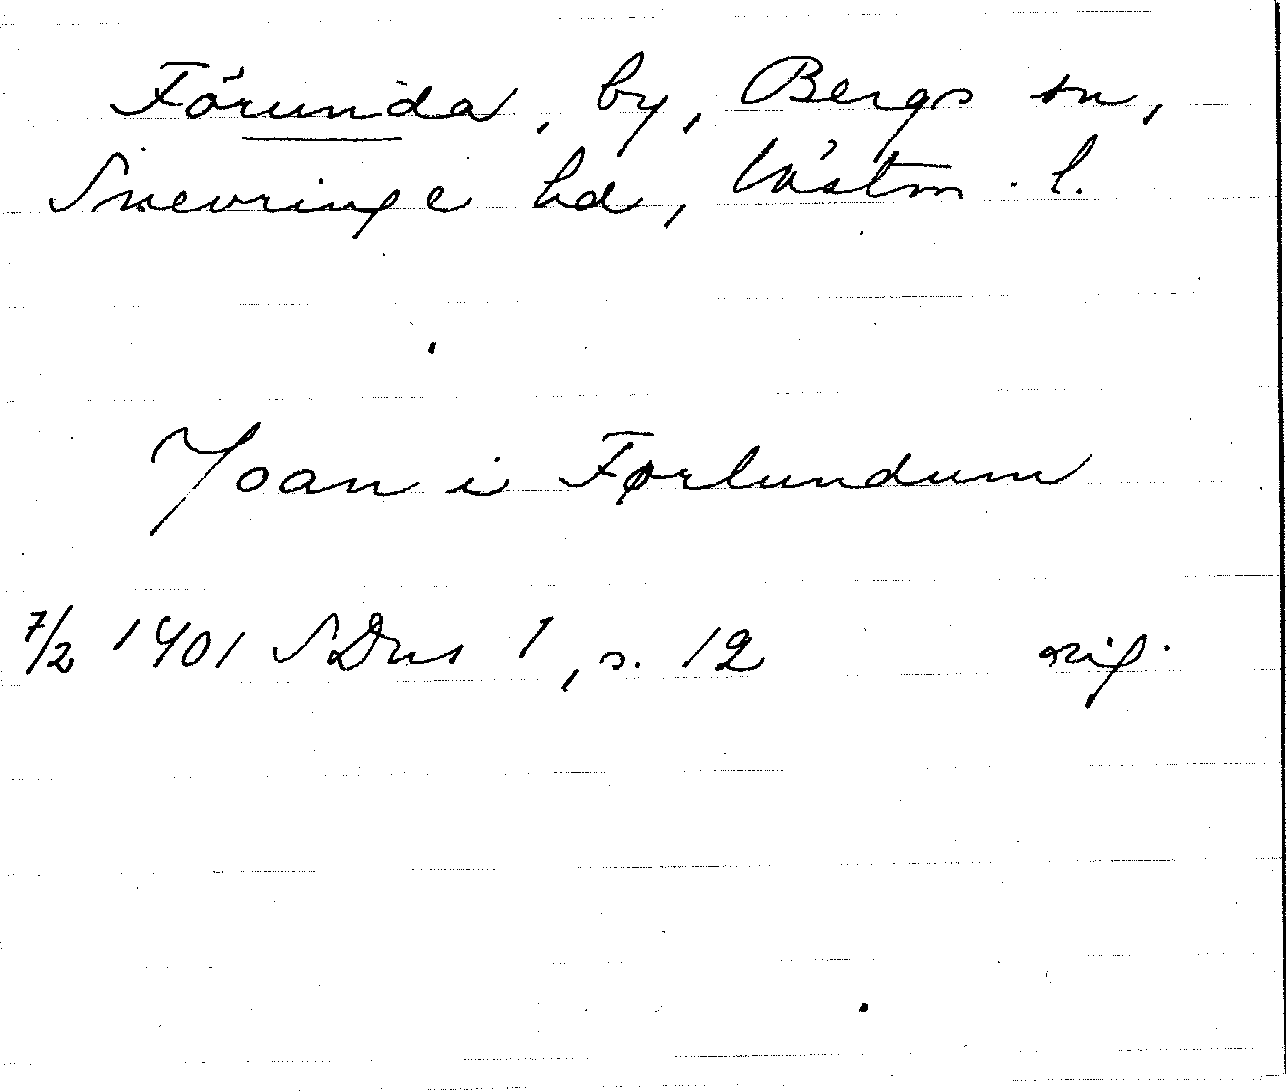 Förunda, by, Bergs sn,
Snevringe hd, Västm. l.
Joan i Førlundum
7/2 1401 SDns 1, s. 12 orig.